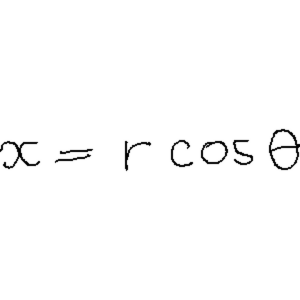 x = r cosθ